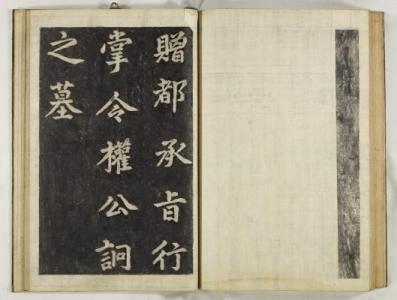 贈都承旨行
掌令權公詗
之墓